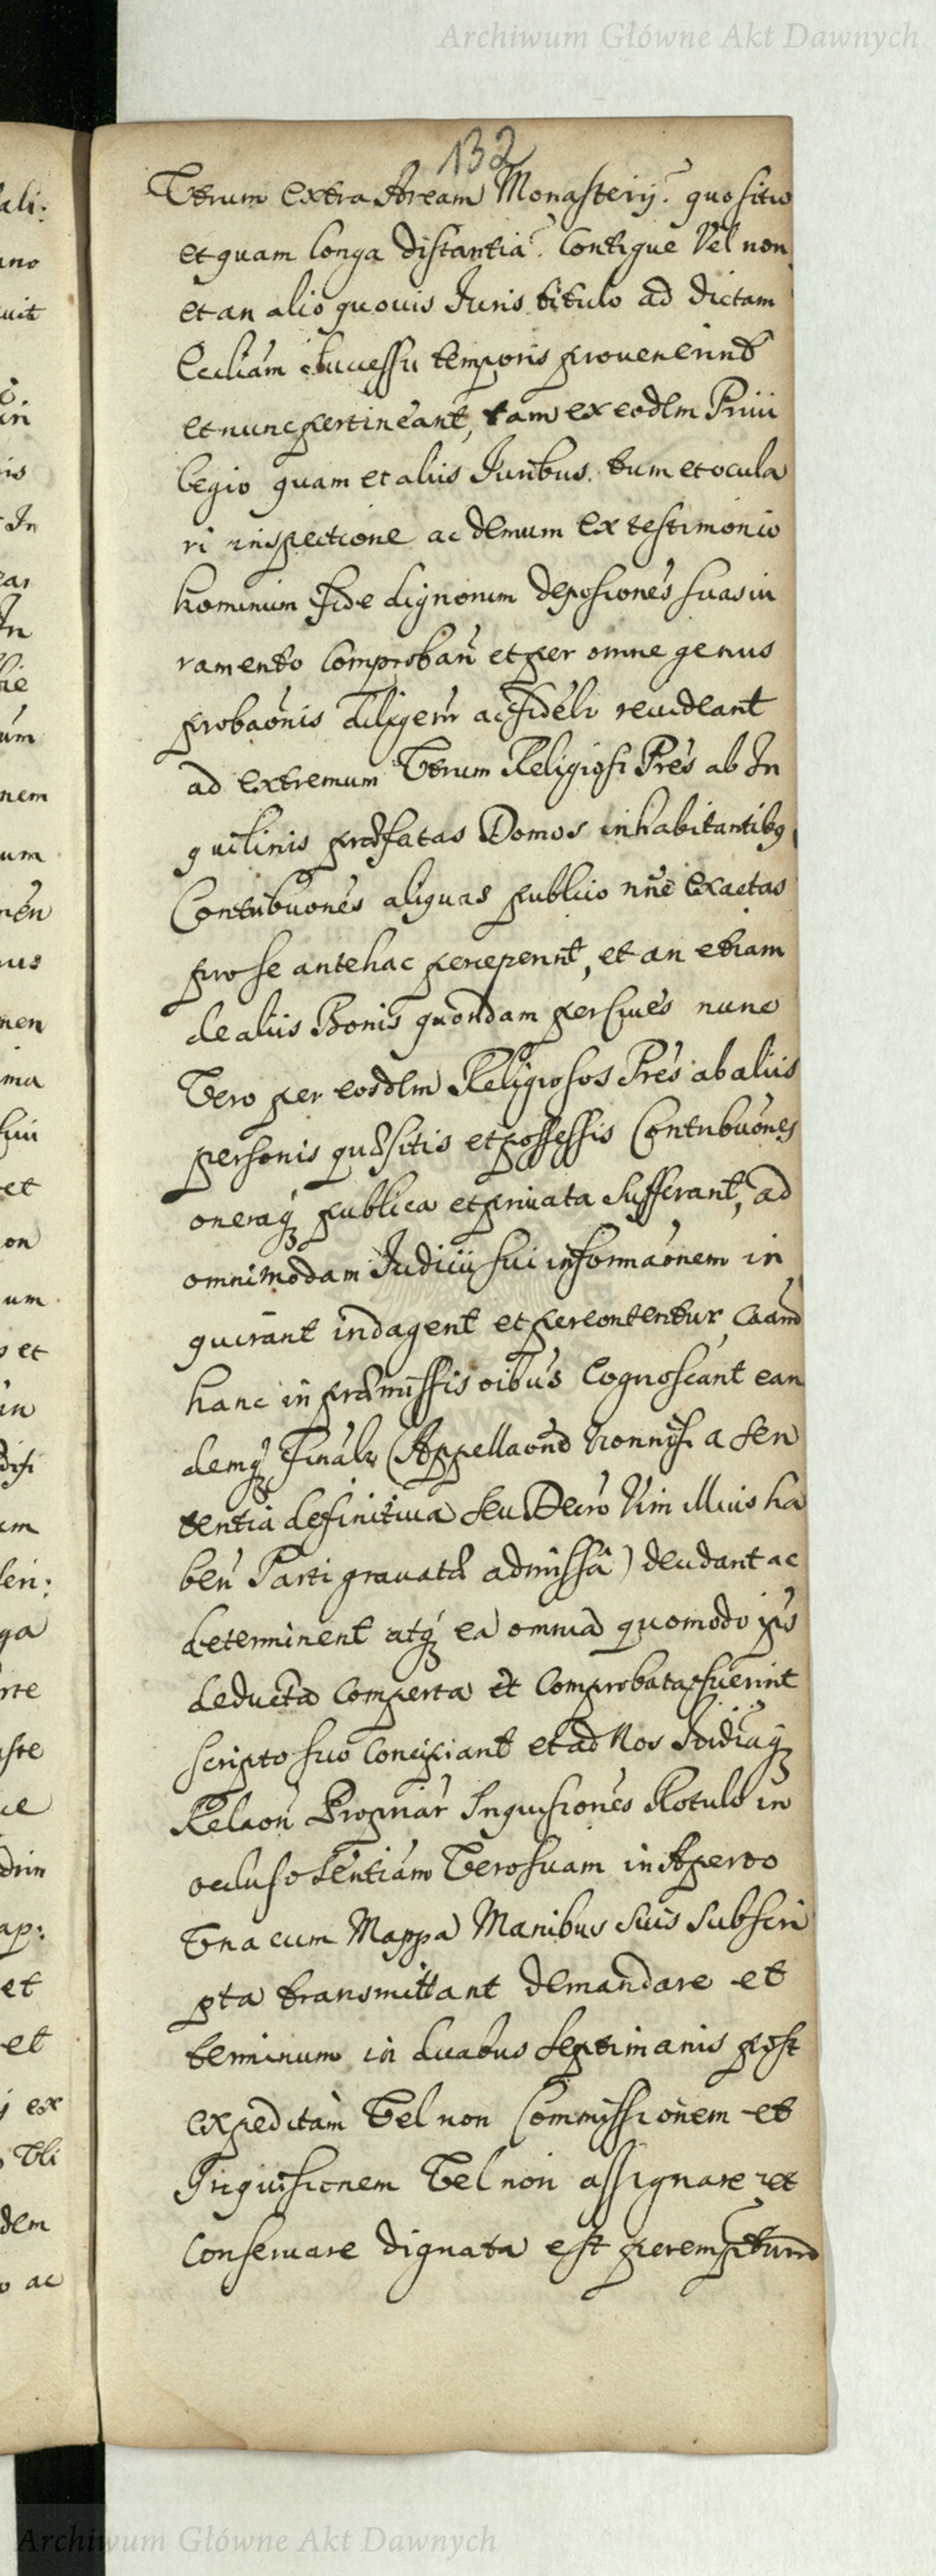 Archiwum Główne Akt Dawnych
132
Utrum extra Aream Monasterij? quo situ
et quam longa distantia? Contigue Vel non
et an alio quovis Juris titulo ad dictam
Eccliam successu temporis provenerint
et nunc pertineant, tam ex eodem Privi
legio quam et aliis Juribus. tum et ocula
ri inspectione ac demum ex testimonio
hominum fide dignorum deposiones suas iu
ramento Comproban et per omne genus
probaonis diligenr ac fidelr revideant
ad extremum Utrum Religiosi Pres ab In
quilinis præfatas Domos inhabitantibq
Contribuones aliquas publico nne exactas
pro se antehac perceperint, et an etiam
de aliis Bonis quondam per Cives nunc
Vero per eosdem Religiosos Pres ab aliis
personis quæsitis et possessis Contribuones
oneraq publica et privata sufferant, ad
omnimodam Judicii sui informaonem in
quirant indagent et percontentur, Caamq
hanc in præmissis oibus Cognoscant ean
demq Finalr (Appellaone nonnisi a sen
tentia definitiva seu Decro Vim illius ha
ben Parti gravatæ admissa) decidant ac
determinent atq ea omnia quomodo ips
deducta Comperta et Comprobata fuerint
scripto suo Concipiant et ad Nos Judiciaq
Relaon Propriar Inquisiones Rotulo in
occluso sentiam Vero suam in Aperto
Una cum Mappa Manibus suis subscri
pta transmittant demandare et
terminum in duabus septimanis post
expeditam Vel non Commissionem et
Inquisicionem Vel non assignare et
Conservare dignata est peremptorium
Archiwum Główne Akt Dawnych